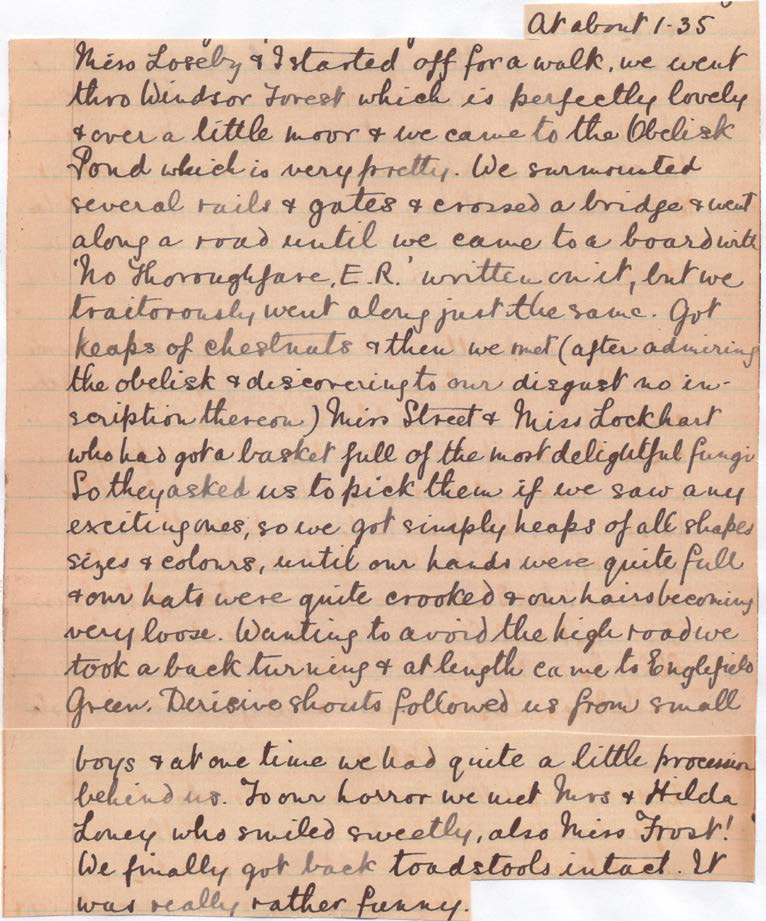 At about 1-35
Miss Loseby & I started off for a walk, we went
thro Windsor Forest which is perfectly lovely
& over a little moor & we came to the Obelisk
Pond which is very pretty. We surmounted
several rails & gates & crossed a bridge & went
along a road until we came to a board with
'No Thoroughfare, E.R.' written on it, but we
traitorously went along just the same. Got
heaps of chestnuts & then we met (after admiring
the obelisk & discovering to our disgust no in-
scription thereon) Miss Street & Miss Lockhart
who had got a basket full of the most delightful fungi
So they asked us to pick them if we saw any
exciting ones, so we got simply heaps of all shapes
sizes & colours, until our hands were quite full
& our hats were quite crooked & our hairs becoming
very loose. Wanting to avoid the high road we
took a back turning & at length came to Englefield
Green. Derisive shouts followed us from small
boys & at one time we had quite a little procession
behind us. To our horror we met Mrs & Hilda
Loney who smiled sweetly, also Miss Frost!
We finally got back toadstools intact. It
was really rather funny.